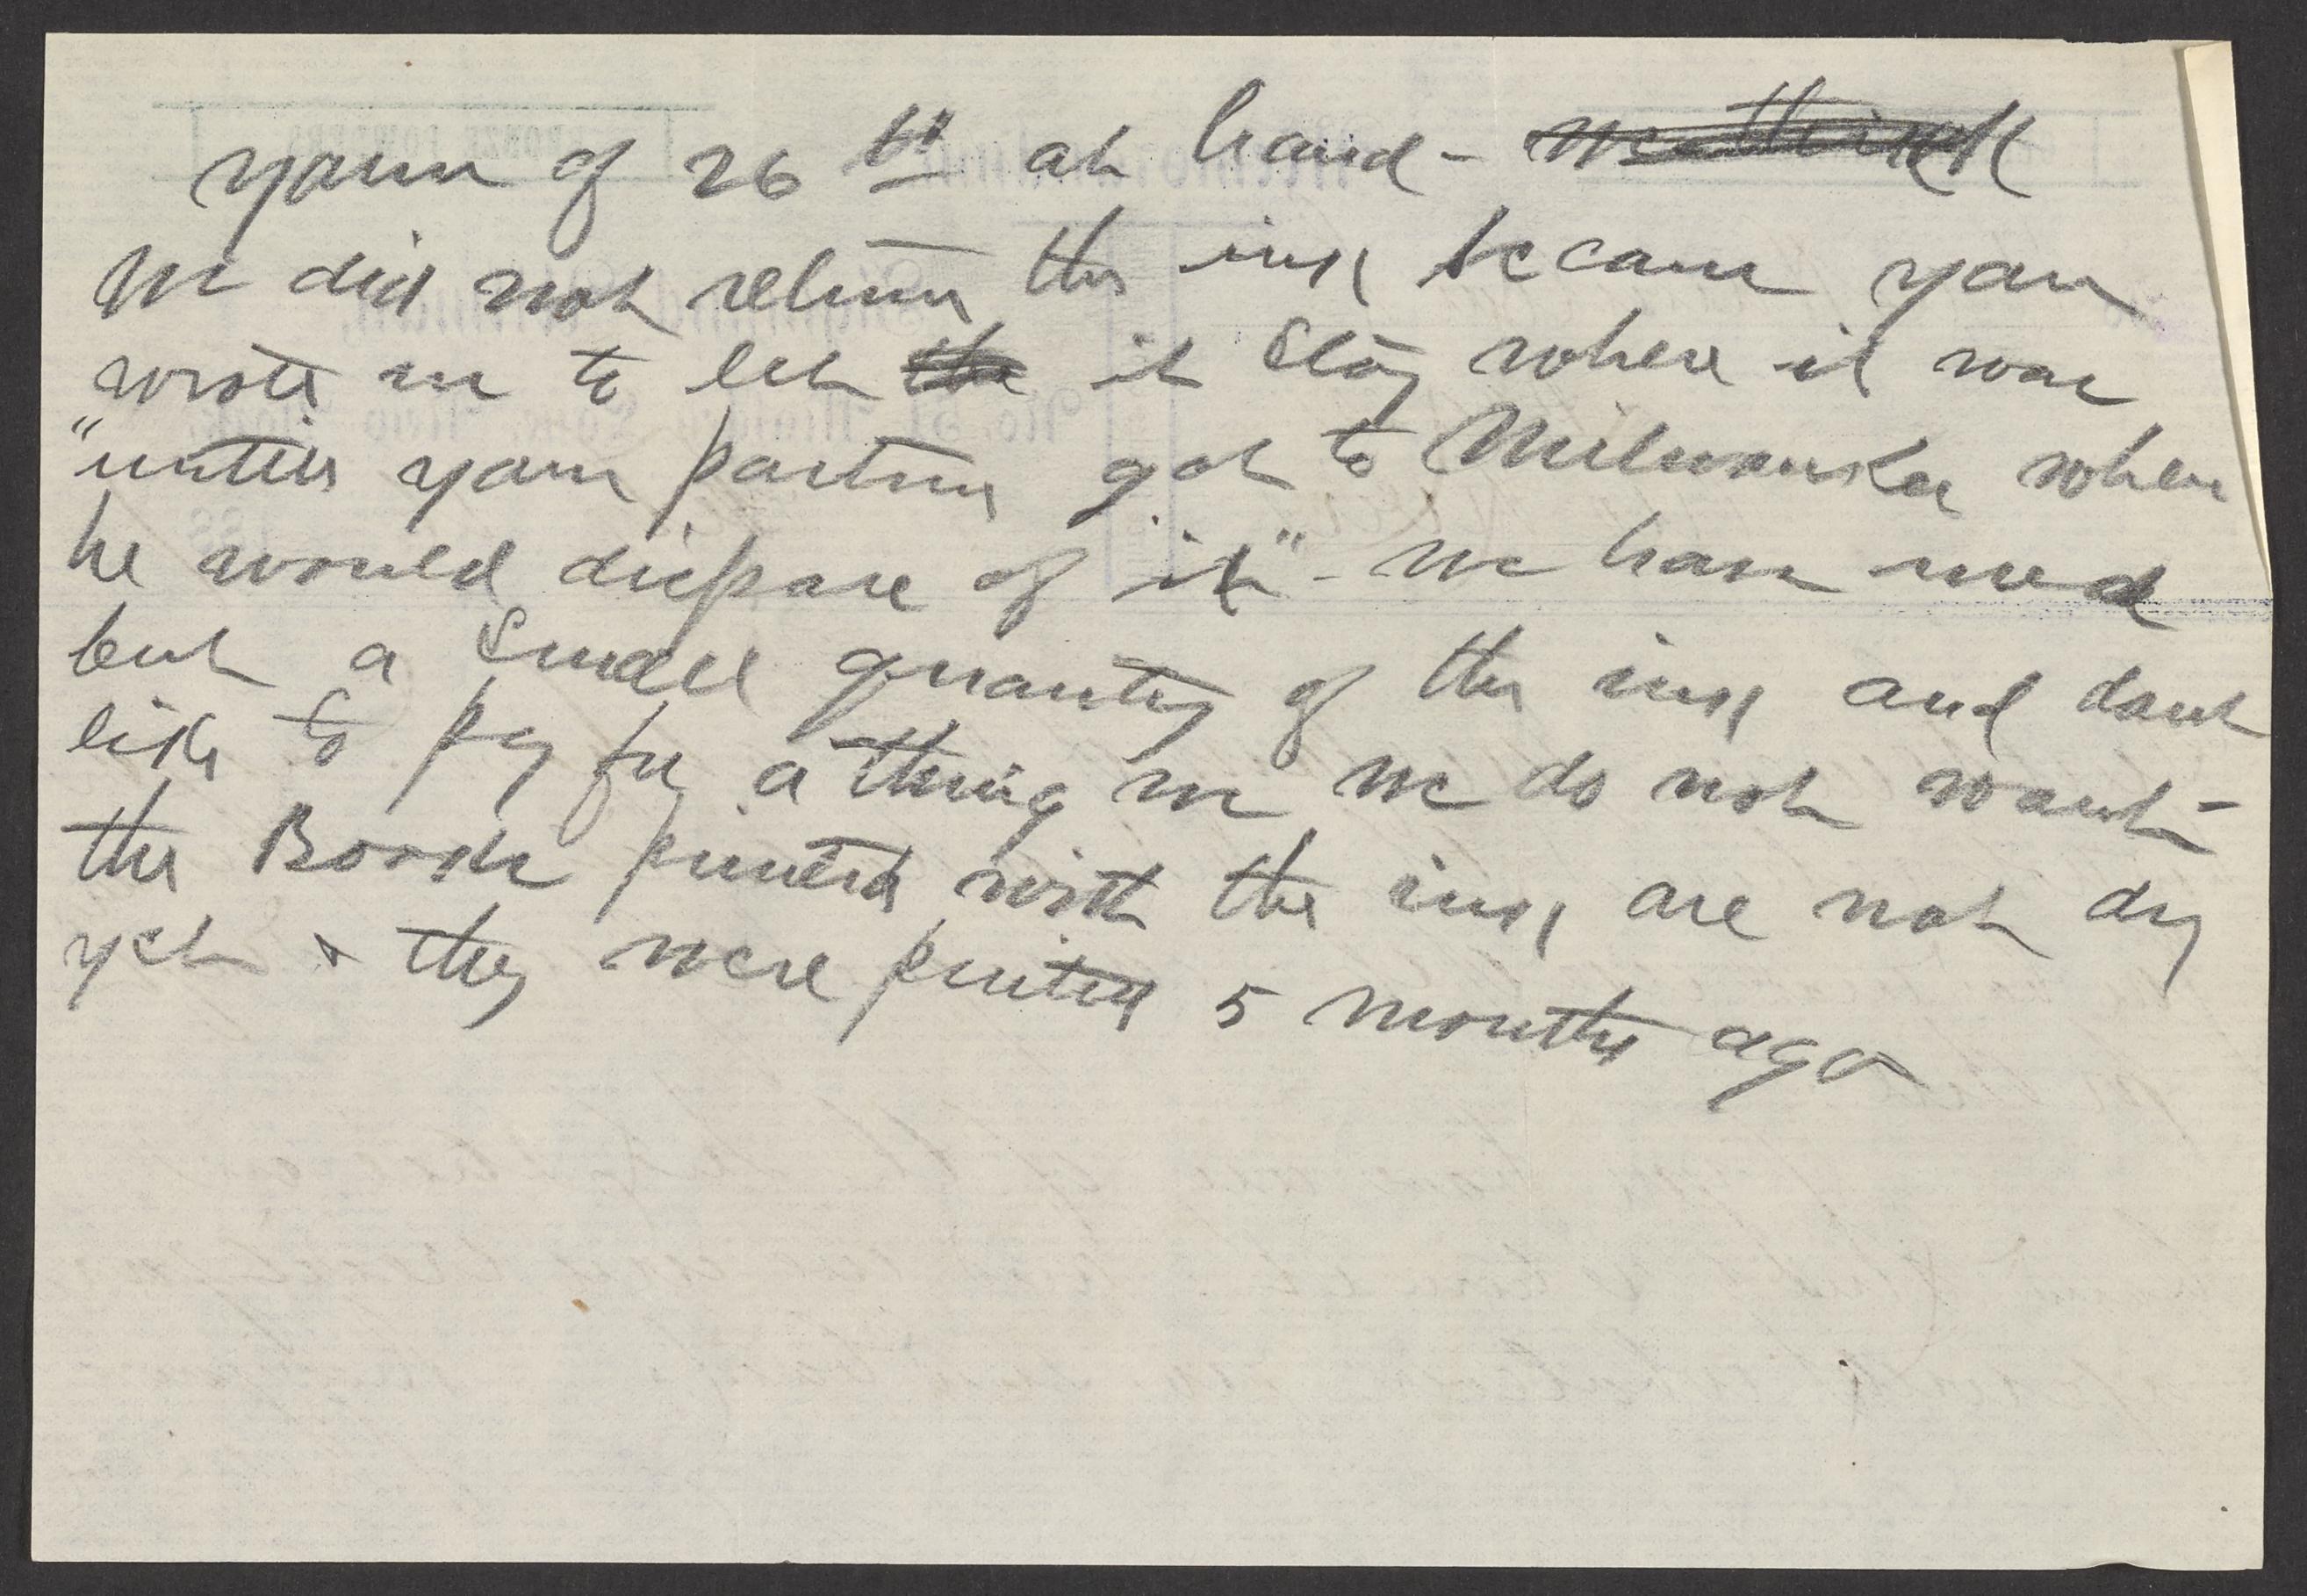 yours of 26th at hand - we think
We did not return the ink because you
wrote us to let the it stay where it was
"until your partner got to Milwaukee when
he would dispose of it" - we have used
but a small quantity of the ink and dont
like to pay for a thing we we do not want -
the Books printed with the ink are not dry
yet & they were printed 5 months ago